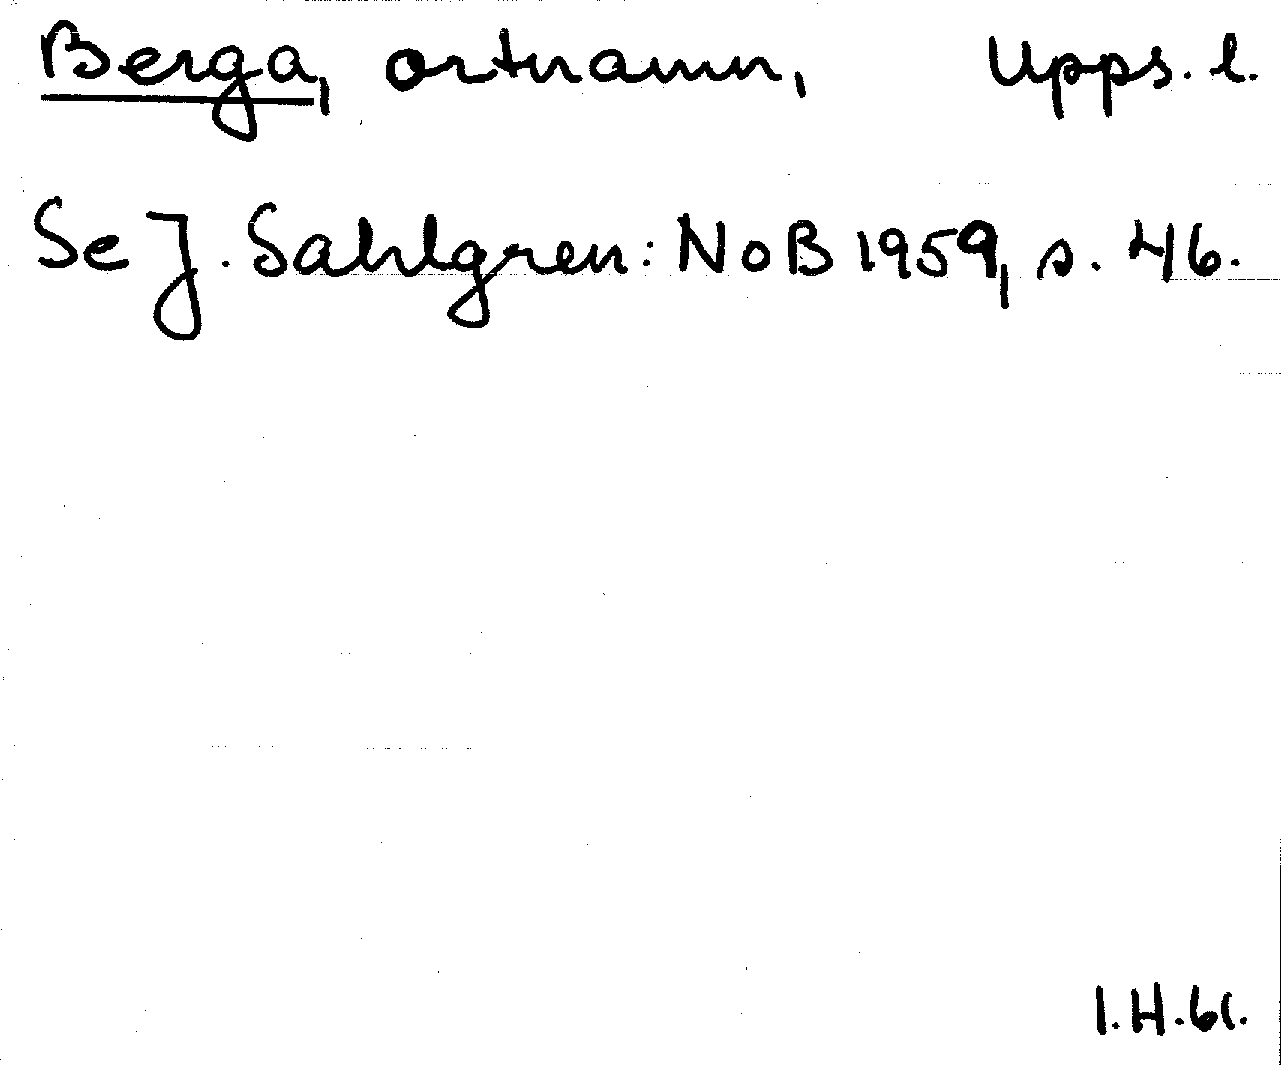 Berga, ortnamn, Upps. l.
Se J. Sahlgren: NoB 1959, s. 46.
I.H.61.